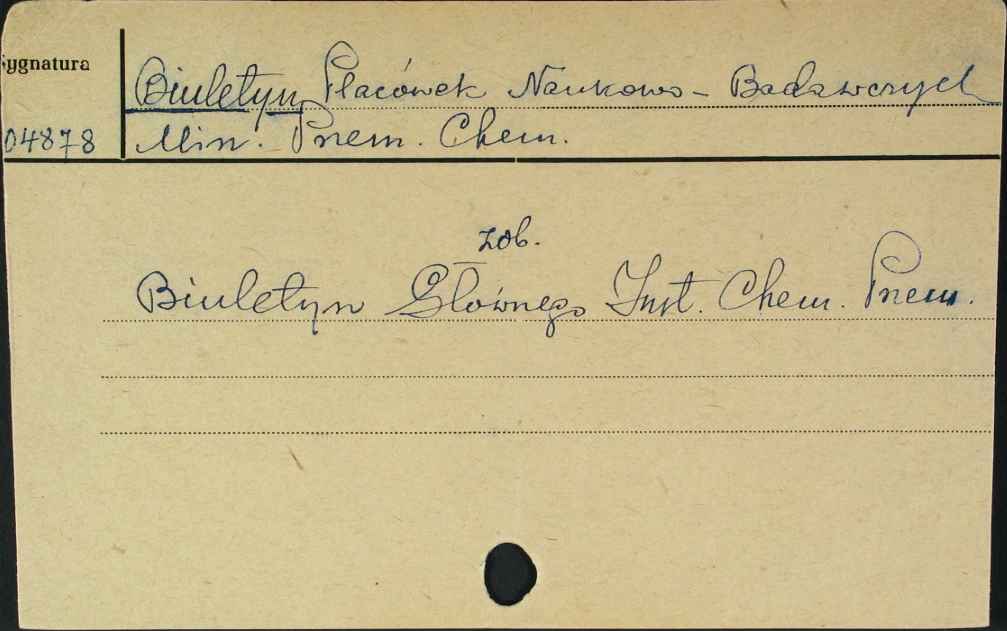 Sygnatura
Biuletyn Placówek Naukowo-Badawczych
04878
Min. Przem. Chem.
zob.
Biuletyn Głównego Inst. Chem. Przem.